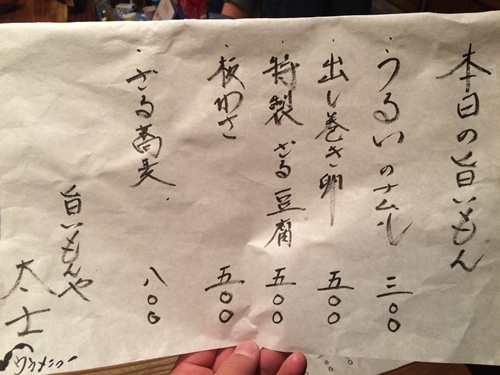 本日の旨いもん
・うるいのナムル 三〇〇
・出し巻き卵 五〇〇
・特製ざる豆腐 五〇〇
・板わさ 五〇〇
・ざる蕎麦 八〇〇
旨いもんや
太士